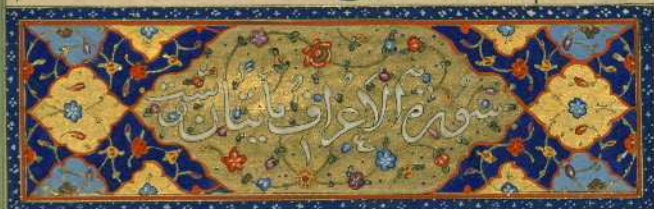 سورة الاعراف مایتان وست